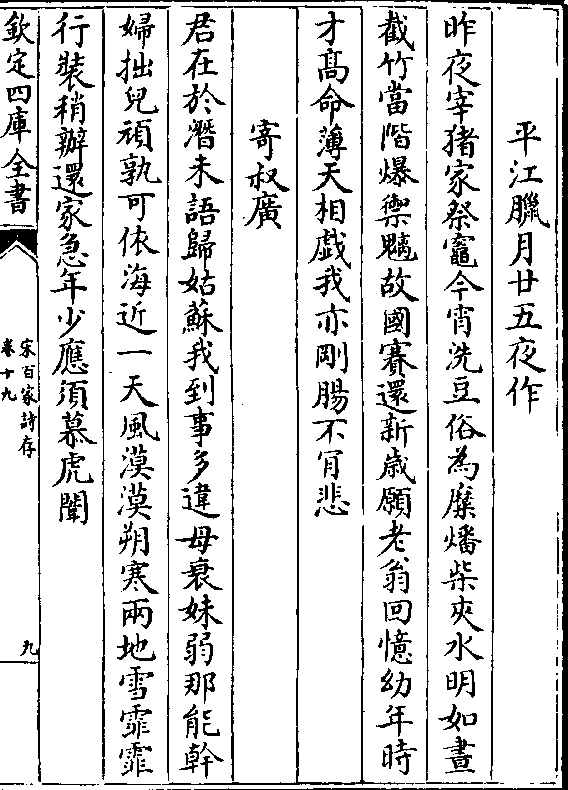 平江臘月廿五夜作
昨夜宰猪家祭竈今宵洗豆俗為糜燔柴夾水明如晝
截竹當階爆禦魑故國賽還新歲願老翁回憶幼年時
才髙命薄天相戯我亦剛腸不肎悲
寄叔廣
君在於潛未語歸姑蘇我到事多違母衰妹弱那能幹
婦拙兒頑孰可依海近一天風漠漠朔寒兩地雪霏霏
行裝稍辦還家急年少應須慕虎闈
欽定四庫全書
宋百家詩存
卷十九
九